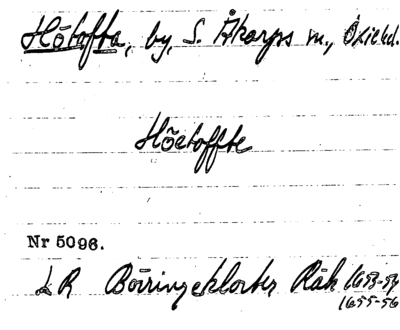 Hötofta, by, S. Åkarps sn., Oxie hd.
Höetoffte
Nr 5096.
LR Börringeklosters Räk 1653-54
1655-56